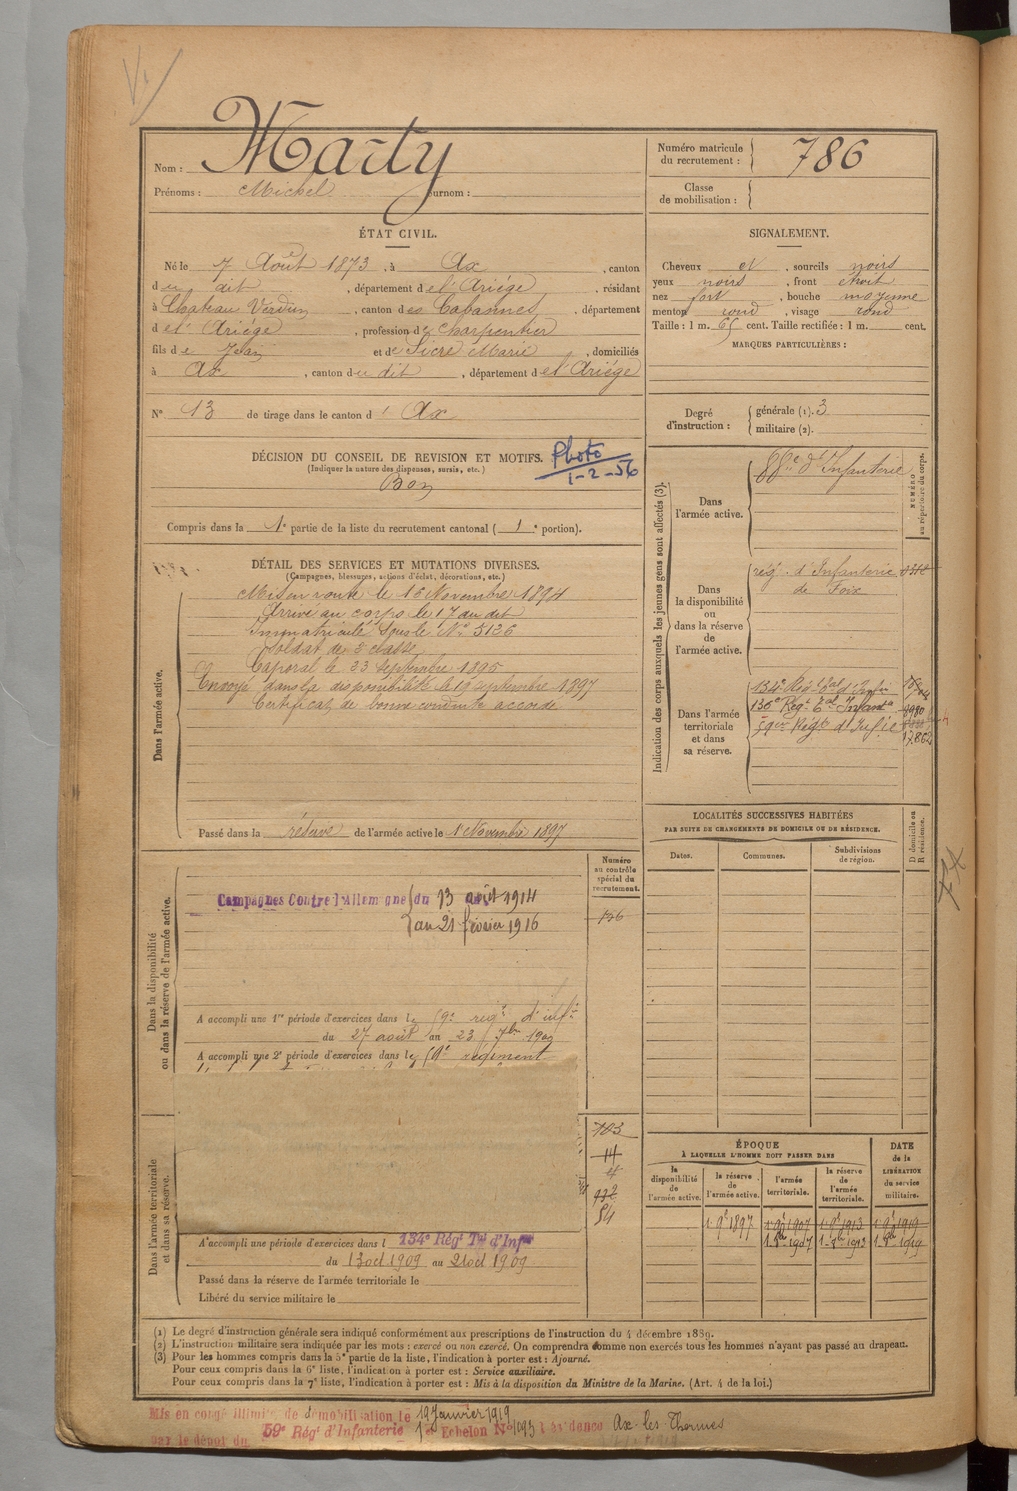 Nom : Marty
Prénoms : Michel surnom :
Numéro matricule du recrutement : 786
Classe de mobilisation :
ÉTAT CIVIL.
Né le 7 Août 1873, à Ax, canton
du dit, département de l'Ariége, résidant
à Chateau Verdun, canton des Cabannes, département
de l'Ariége, profession de charpentier
fils de Jean et de Sicre Marie, domiciliés
à Ax, canton du dit, département de l'Ariége
N° 13 de tirage dans le canton d' Ax
SIGNALEMENT.
Cheveux et, sourcils noirs
yeux noirs, front étroit
nez fort, bouche moyenne
menton rond, visage rond
Taille : 1 m. 65 cent. Taille rectifiée : 1 m. cent.
MARQUES PARTICULIÈRES :
Degré d'instruction : générale (1). 3
militaire (2).
DÉCISION DU CONSEIL DE REVISION ET MOTIFS.
(Indiquer la nature des dispenses, sursis, etc.)
Bon
Photo
1-2-56
Compris dans la 1e partie de la liste du recrutement cantonal ( 1e portion).
DÉTAIL DES SERVICES ET MUTATIONS DIVERSES.
(Campagnes, blessures, actions d'éclat, décorations, etc.)
Dans l'armée active.
Mis en route le 16 Novembre 1894
Arrivé au corps le 17 au dit
Immatriculé sous le N° 5126
Soldat de 2e classe
Caporal le 23 septembre 1895
Envoyé dans la disponibilité le 19 septembre 1897
Certificat de bonne conduite accordé
Passé dans la réserve de l'armée active le 1 Novembre 1897
Indication des corps auxquels les jeunes gens sont affectés (3).
NUMÉRO au répertoire du corps.
Dans l'armée active.
88e d'Infanterie
Dans la disponibilité ou dans la réserve de l'armée active.
rég. d'Infanterie
de Foix
Dans l'armée territoriale et dans sa réserve.
134e Régt tal d'Infie
136e Régt Tal Infanta
59em Régt d'Infie
8980
17.862
LOCALITÉS SUCCESSIVES HABITÉES
PAR SUITE DE CHANGEMENTS DE DOMICILE OU DE RÉSIDENCE.
Dates. Communes. Subdivisions de région. D domicile ou R résidence.
Dans la disponibilité ou dans la réserve de l'armée active.
Numéro au contrôle spécial du recrutement.
Campagnes Contre l'Allemagne du 13 août 1914
au 21 février 1916
A accompli une 1re période d'exercices dans le 59e régt d'inf
du 27 août au 23 7bre 1900
A accompli une 2e période d'exercices dans le 59e régiment
Dans l'armée territoriale et dans sa réserve.
703
14
4
112
84
A accompli une période d'exercices dans l 134e Régt Tal d'Infie
du 13 oct 1909 au 21 oct 1909
Passé dans la réserve de l'armée territoriale le
Libéré du service militaire le
ÉPOQUE
À LAQUELLE L'HOMME DOIT PASSER DANS
DATE de la LIBÉRATION du service militaire.
la disponibilité de l'armée active. la réserve de l'armée active. l'armée territoriale. la réserve de l'armée territoriale.
1 9e 1897 1 9e 1907 1 9e 1913 1 9e 1919
1 8b 1907 1 8b 1913 1 8b 1919
(1) Le degré d'instruction générale sera indiqué conformément aux prescriptions de l'instruction du 4 décembre 1889.
(2) L'instruction militaire sera indiquée par les mots : exercé ou non exercé. On comprendra comme non exercés tous les hommes n'ayant pas passé au drapeau.
(3) Pour les hommes compris dans la 5e partie de la liste, l'indication à porter est : Ajourné.
Pour ceux compris dans la 6e liste, l'indication à porter est : Service auxiliaire.
Pour ceux compris dans la 7e liste, l'indication à porter est : Mis à la disposition du Ministre de la Marine. (Art. 4 de la loi.)
Mis en congé illimité de démobilisation le 19 Janvier 1919
par le dépôt du 59e Régt d'Infanterie 1er Echelon N° 1093 Résidence Ax-les-Thermes